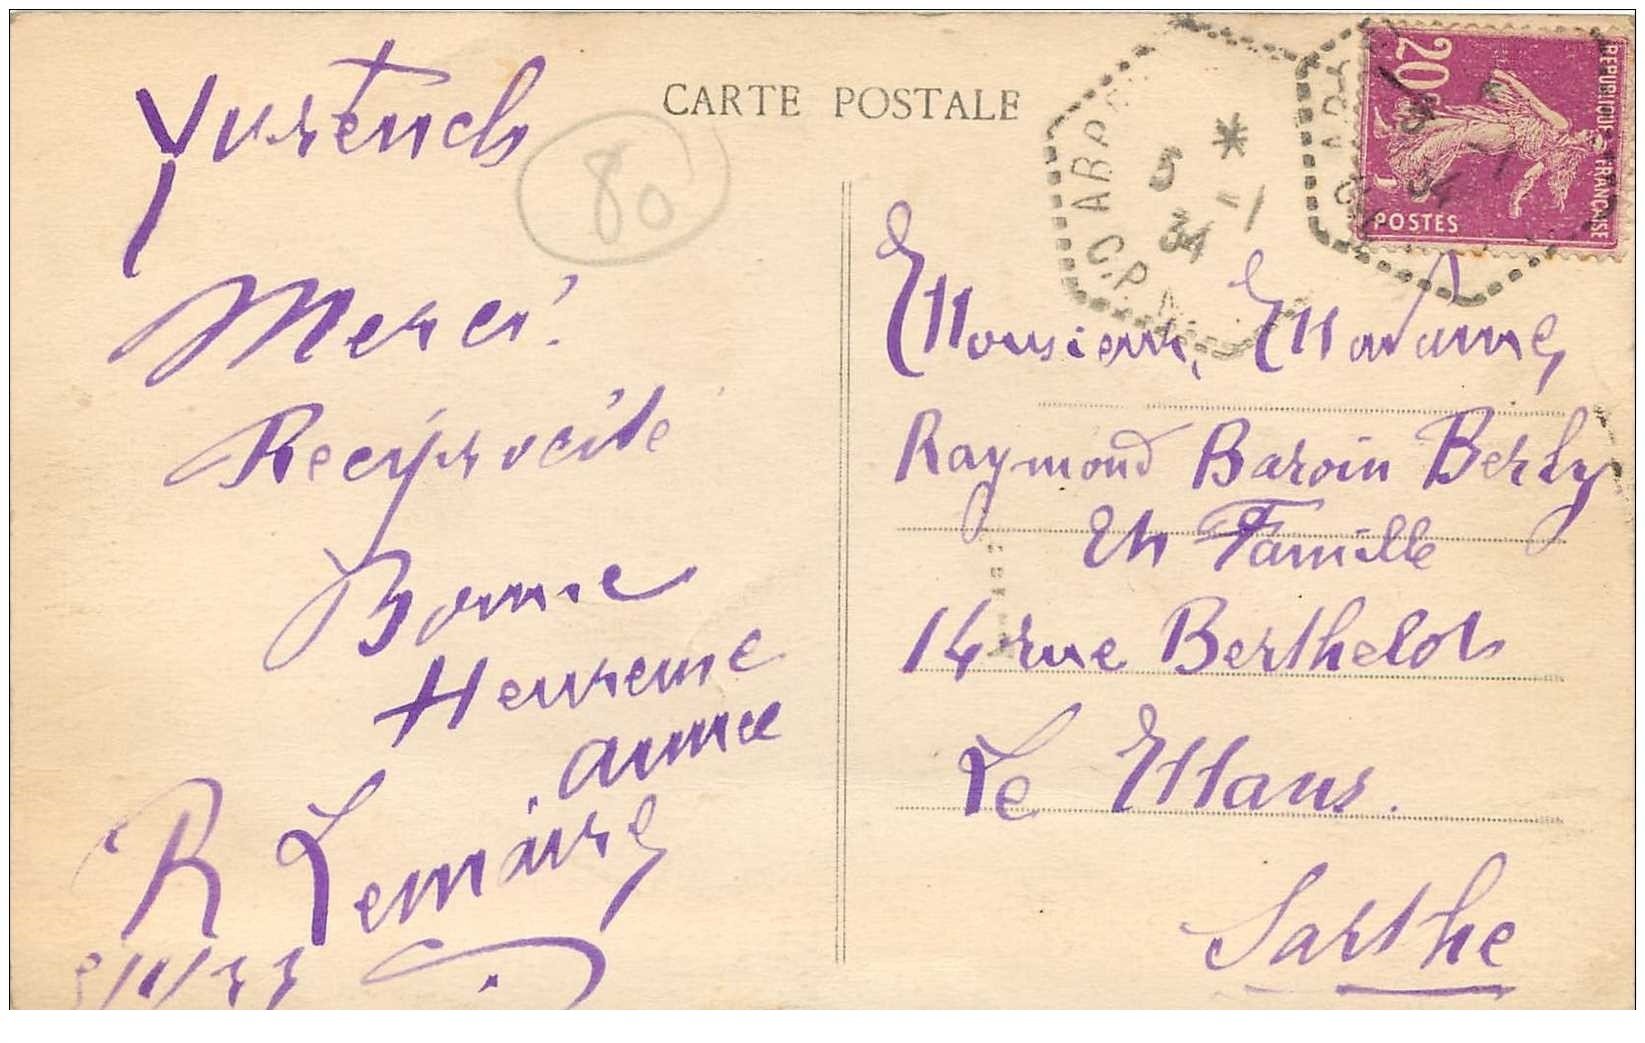 CARTE POSTALE
80
Yvrench
Merci.
Reciprocite
Bonne
Heureuse
année
R Lemaire
5/1/33
5 -1
34
*
C.P.
20
REPUBLIQUE FRANÇAISE
POSTES
Monsieur, Madame
Raymond Baroin Berly
En Famille
14 rue Berthelot
Le Mans.
Sarthe